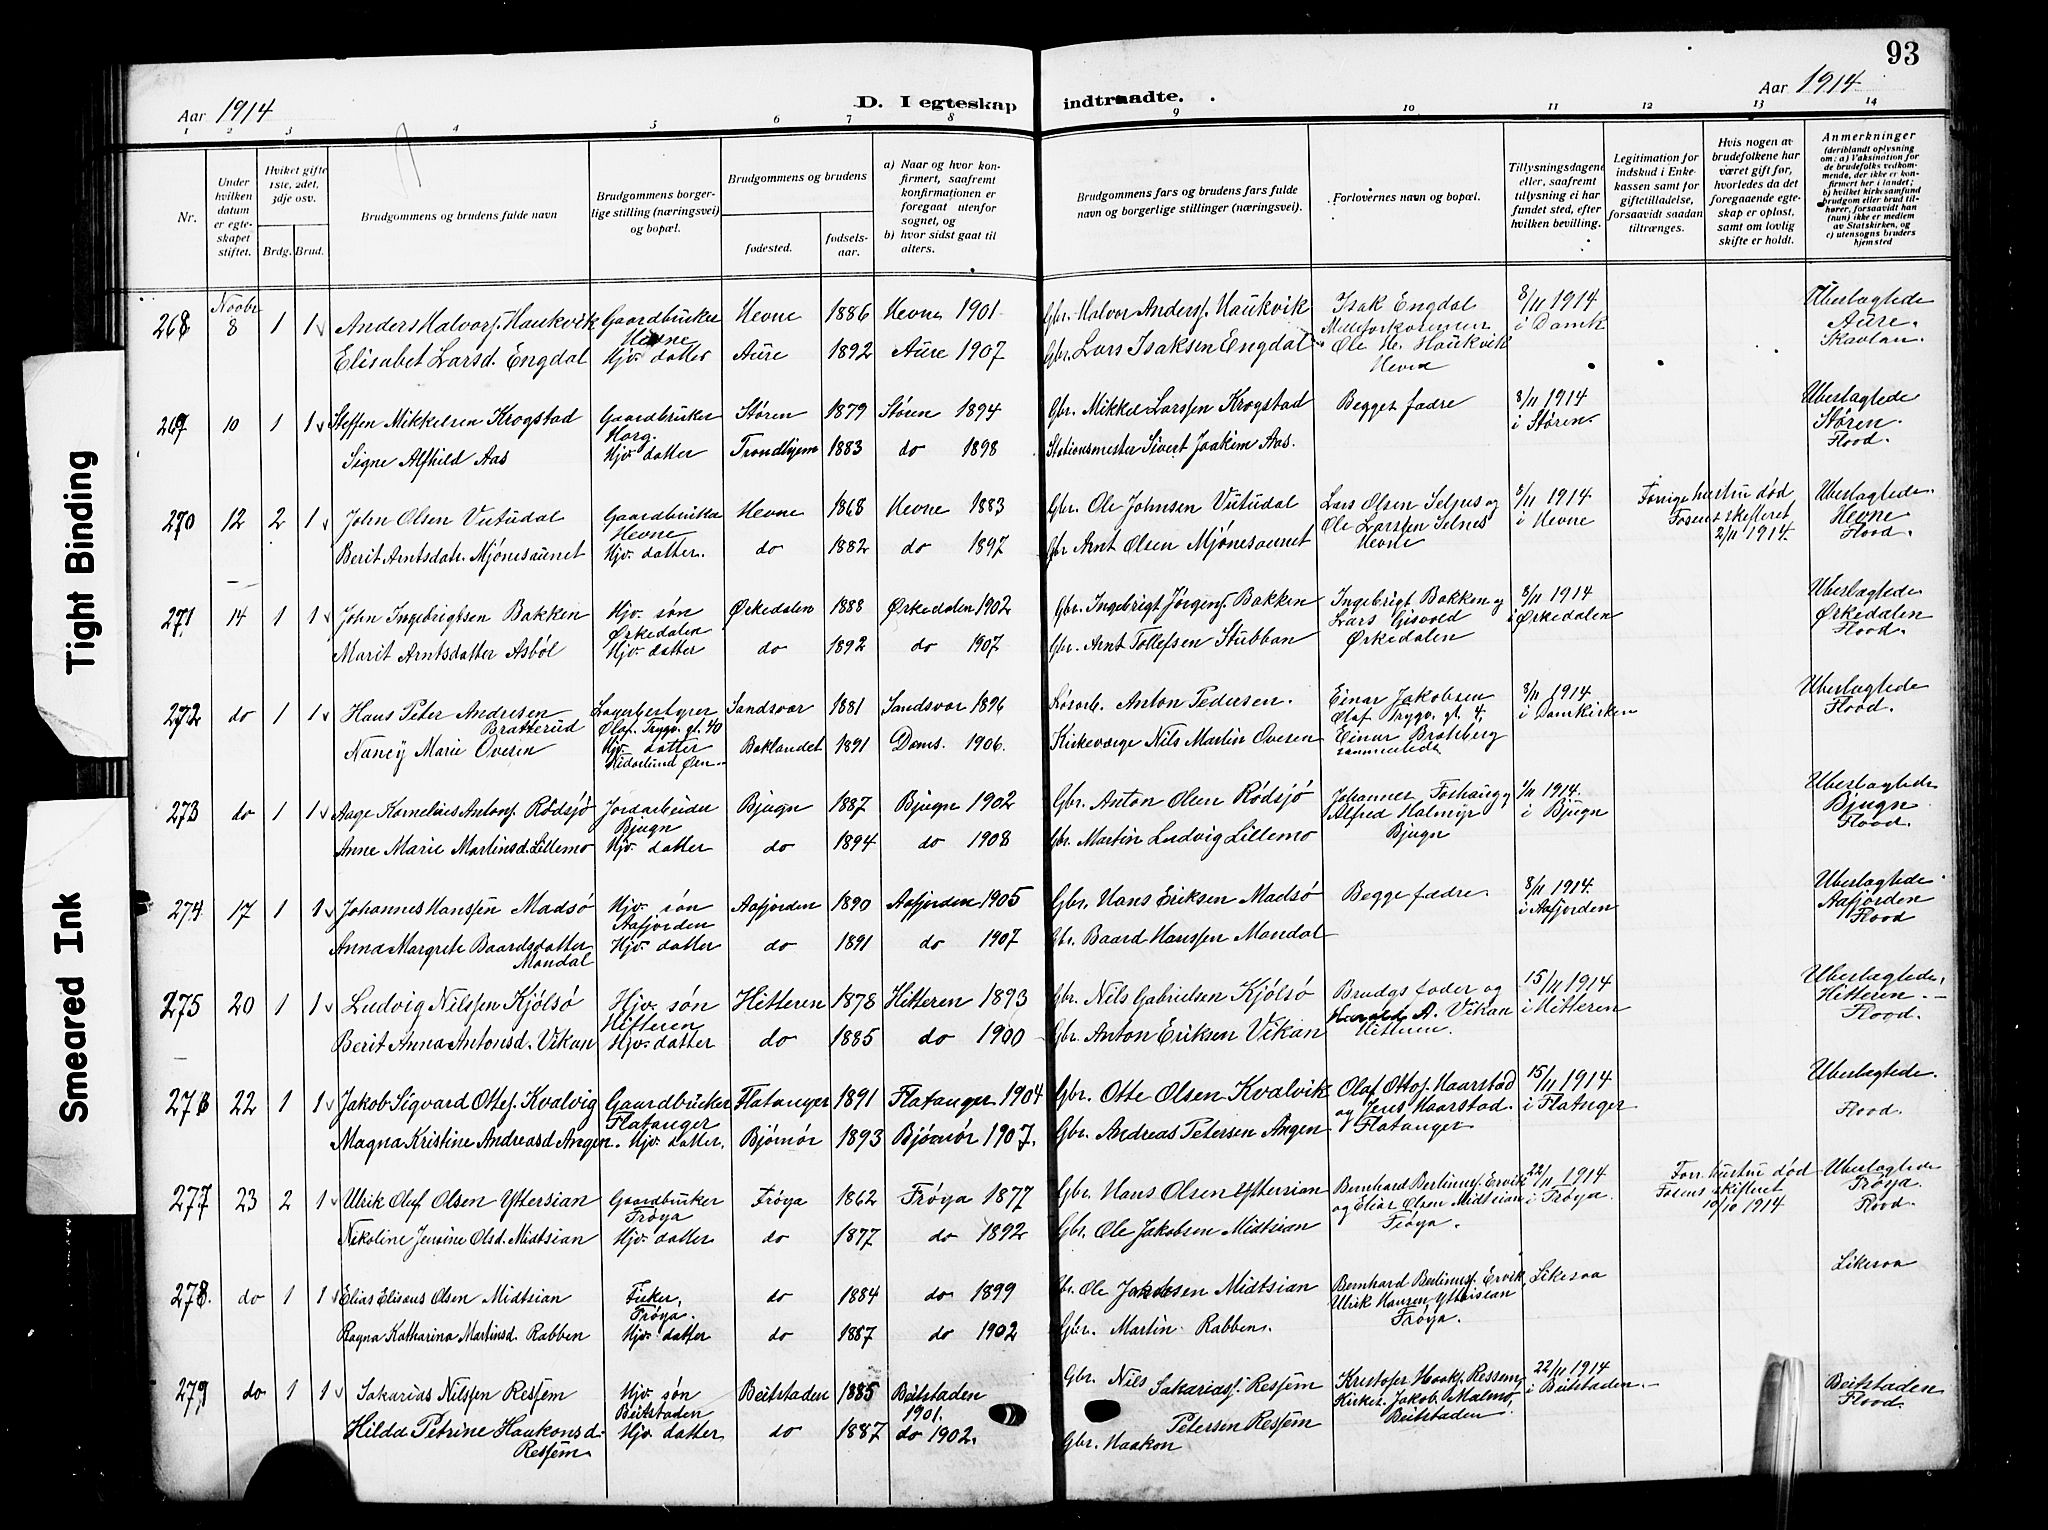 93
Aar 1914
D. I egteskap indtraadte.
Aar 1914
1 2 3 4 5 6 7 8 9 10 11 12 13 14
Nr.
Under hvilken datum er egteskapet stiftet.
Hvilket gifte 1ste, 2det, 3dje osv.
Brdg. Brud.
Brudgommens og brudens fulde navn
Brudgommens borgerlige stilling (næringsvei) og bopæl.
Brudgommens og brudens
fødested. fødselsaar.
a) Naar og hvor konfirmert, saafremt konfirmationen er foregaat utenfor sognet, og
b) hvor sidst gaat til alters.
Brudgommens fars og brudens fars fulde navn og borgerlige stillinger (næringsvei).
Forlovernes navn og bopæl.
Tillysningsdagene eller, saafremt tillysning ei har fundet sted, efter hvilken bevilling.
Legitimation for indskud i Enkekassen samt for giftetilladelse, forsaavidt saadan tiltrænges.
Hvis nogen av brudefolkene har været gift før, hvorledes da det foregaaende egteskap er opløst, samt om lovlig skifte er holdt.
Anmerkninger (deriblandt oplysning om: a) Vaksination for de brudefolks vedkommende, der ikke er konfirmert her i landet; b) hvilket kirkesamfund brudgom eller brud tilhører, forsaavidt han (hun) ikke er medlem av Statskirken, og c) utensogns bruders hjemsted
268 Novbr 8 1 1 Anders Halvors. Haukvik Gaardbruker Hevne Hevne 1886 Hevne 1901 Gbr. Halvor Anders. Haukvik Isak Engdal 8/11 1914 i Domk Ubeslagtede Aure.
Elisabet Larsd. Engdal Hjv. datter Aure 1892 Aure 1907 Gbr. Lars Isaksen Engdal Ole H. Haukvik
269 10 1 1 Steffen Mikkelsen Krogstad Gaardbruker Horg. Støren 1879 Støren 1894 Gbr. Mikkel Larssen Krogstad Begges fædre 8/11 1914 i Støren. Ubeslagtede Støren. Flood.
Signe Alfhild Aas Hjv. datter Trondhjem 1883 do 1898 Stationsmester Sivert Joakim Aas.
270 12 2 1 John Olsen Vutudal Gaardbruker Hevne Hevne 1868 Hevne 1883 Gbr. Ole Johnsen Vutudal Lars Olsen Selnes og Ole Larssen Selnes Hevne 8/11 1914 i Hevne Forrige hustru død Fosens skifteret 2/11 1914. Ubeslagtede Hevne Flood.
Berit Arntsdatr. Mjönesaunet Hjv. datter. do 1882 do 1897 Gbr Arnt Olsen Mjönesaunet
271 14 1 1 John Ingebrigtsen Bakken Hjv. søn Ørkedalen Ørkedalen 1888 Ørkedalen 1902 Gbr. Ingebrigt Jørgens. Bakken Ingebrigt Bakken og Lars Gisvold Ørkedalen 8/11 1914 i Ørkedalen Ubeslagtede Ørkedalen Flood.
Marit Arntsdatter Asböl Hjv. datter do 1892 do 1907 Gbr. Arnt Tollefsen Stubban
272 do 1 1 Hans Peter Andresen Bratterud Lagerbestyrer Olaf Trygv. gt. 40 Sandsvær 1881 Sandsvær 1896 Anton Pedersen. Einar Jakobsen Olaf Trygv. gt. 4, 8/11 1914 i Domkirken Ubeslagtede Flood.
Nancy Marie Oversen Hjv. datter Baklandet 1891 Doms. 1906. Kirkeværge Nils Martin Oversen Einar Brobberg sammesteds
273 do 1 1 Aage Kornelius Antons. Rödsjö Jordarbeider Bjugn Bjugn 1887 Bjugn 1902 Gbr. Anton Olsen Rödsjö Johannes Foshaug og Alfred Halmyr Bjugn 1/11 1914. i Bjugn Ubeslagtede Bjugn Flood.
Anne Marie Martinsd. Lillemo Hjv. datter do 1894 do 1908 Gbr. Martin Ludvig Lillemo
274 17 1 1 Johannes Hanssen Madsö Hjv. søn Aafjorden Aafjorden 1890 Aafjorden 1905 Gbr. Hans Eriksen Madsö Begge fædre. 8/11 1914. i Aafjorden Ubeslagtede Aafjorden Flood
Anna Margrete Baardsdatter Mandal Hjv. datter do 1891 do 1907 Gbr. Baard Hanssen Mandal
275 20 1 1 Ludvig Nilssen Kjölsö Hjv. søn Hitteren Hitteren 1878 Hitteren 1893 Gbr. Nils Gabrielsen Kjölsö Brudgs fader og Harald A. Vikan Hitteren. 15/11 1914 i Hitteren Ubeslagtede. Hitteren. Flood.
Berit Anna Antonsd. Vikan Hjv. datter do 1885 do 1900 Gbr. Anton Eriksen Vikan
276 22 1 1 Jakob Sigvard Ottes. Kvalvig Gaardbruker Flatanger Flatanger 1891 Flatanger 1904 Gbr. Otte Olsen Kvalvik Olaf Ottos. Haarstad og Jens Haarstad. Flatanger 15/11 1914 i Flatanger Ubeslagtede. Flood.
Magna Kristine Andreasd Angen. Hjv. datter. Bjørnør 1893 Bjørnør 1907. Gbr. Andreas Petersen Angen
277 23 2 1 Ulrik Oluf Olsen Yttersian Gaardbruker Frøya Frøya 1862 Frøya 1877 Gbr. Hans Olsen Yttersian Bernhard Berlinus. Ervik og Elias Olsen Midtsian Frøya. 22/11 1914 i Frøya. Forr. hustru død Fosens skifteret 10/10 1914 Ubeslagtede Frøya. Flood.
Nikoline Jensine Olsd. Midtsian Hjv. datter do 1877 do 1892 Gbr. Ole Jakobsen Midtsian
278. do 1 1 Elias Elisæus Olsen Midtsian Fisker, Frøya. do 1884 do 1899 Gbr. Ole Jakobsen Midtsian Bernhard Berlinus. Ervik, Ulrik Hansen Yttersian Frøya. Likesaa Likesaa
Ragna Katharina Martinsd. Rabben Hjv. datter do 1887 do 1902 Gbr. Martin Rabben.
279 do 1 1 Sakarias Nilssen Ressem Hjv. søn Beitstaden Beitstaden 1885 Beitstaden 1901. Gbr. Nils Sakarias. Ressem Kristofer Haaks. Ressem, Kirkes. Jakob Malmo, Beitstaden. 22/11 1914 i Beitstaden. Beitstaden Flood.
Hilda Petrine Haakonsd. Ressem Hjv. datter do 1887 do 1902. Gbr. Haakon Petersen Ressem
Tight Binding
Smeared Ink